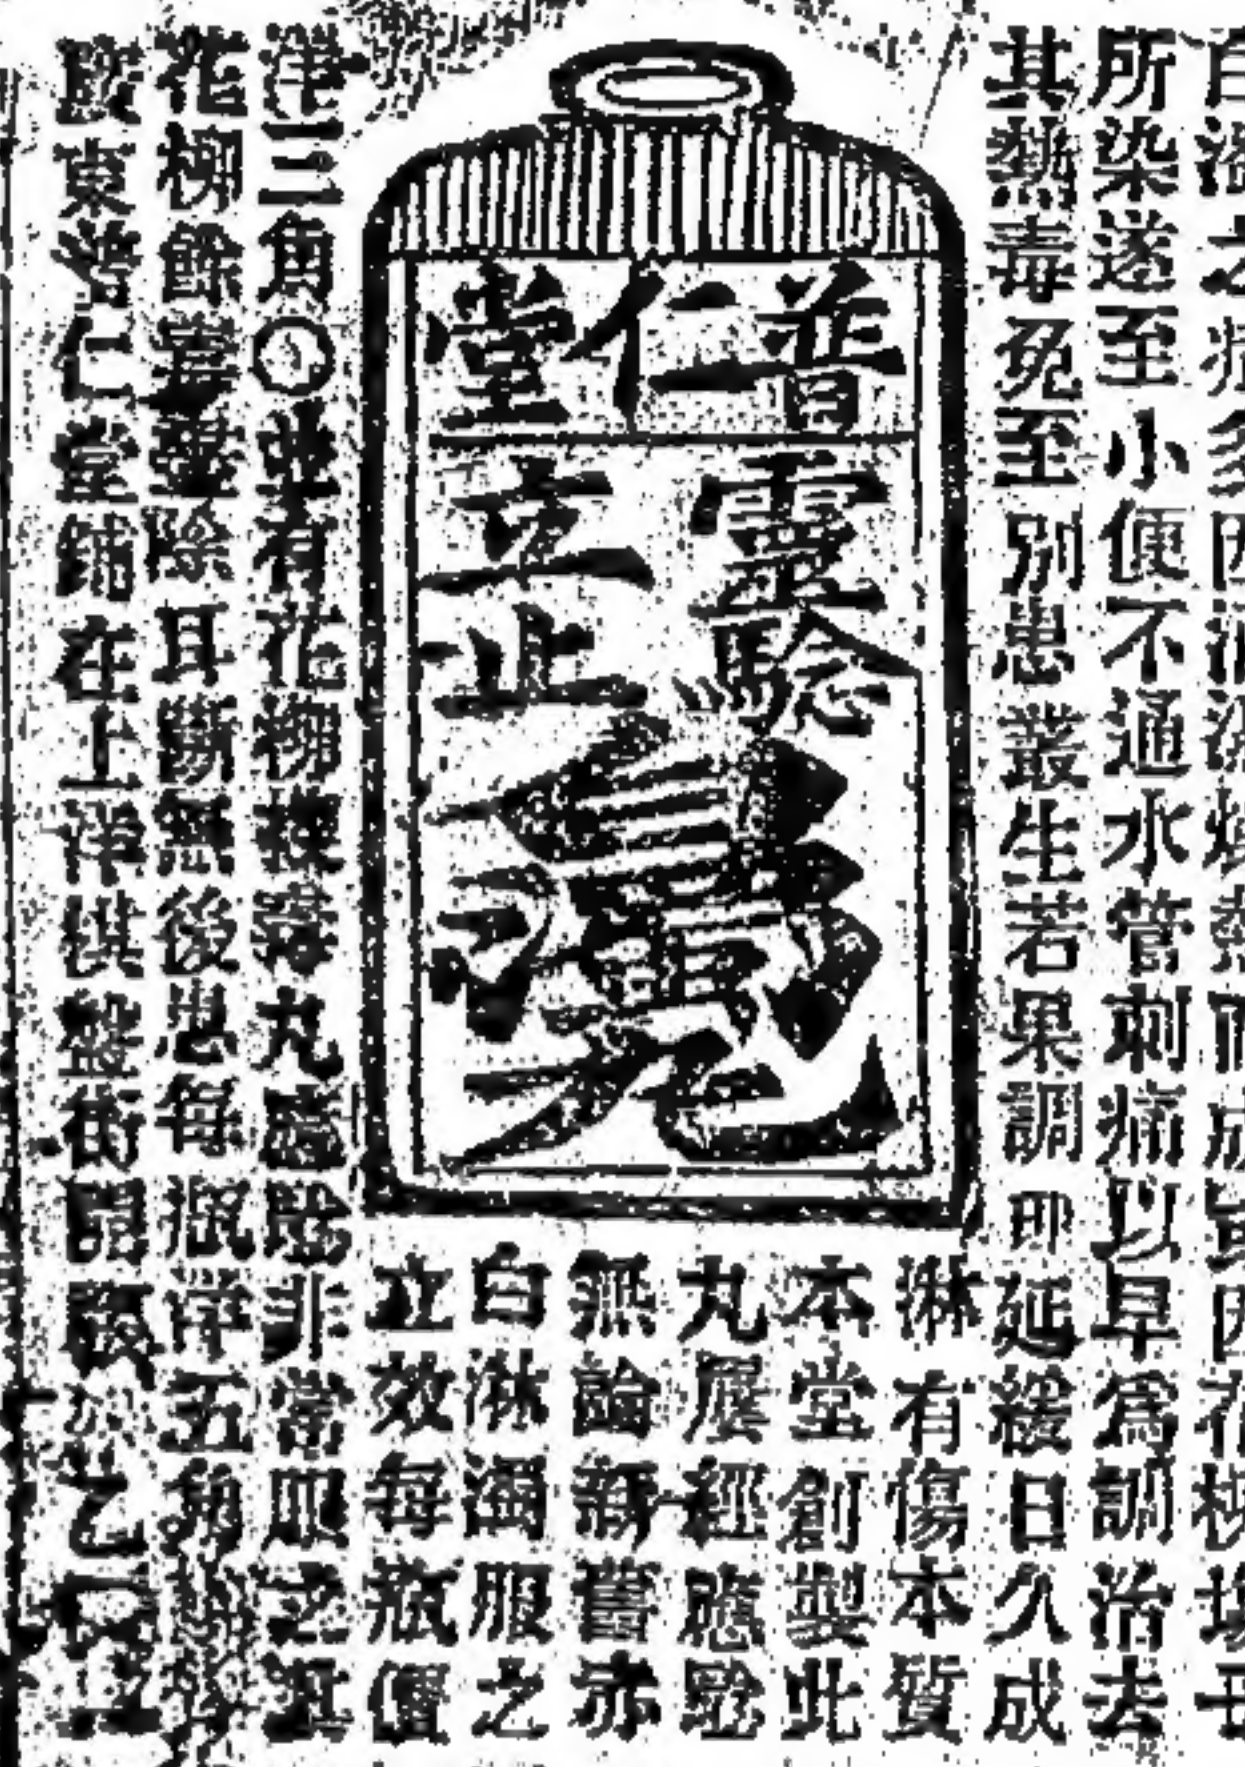 之 多因 熱而成 因花柳場
所染遂至小便不通水管刺痛以早爲訓治去
其熱毒免至別患叢生若果調即延緩日久成
淋有傷本質
普仁堂
靈驗
立止
白濁丸
本堂創製此
丸屢經應驗
無論新舊赤
白淋濁服之
立效每瓶價
洋三角〇並有花柳 毒丸應驗非常服之
花柳餘毒盡除耳斷無後患每瓶洋五角
廣東普仁堂鋪在上洋棋盤街開張